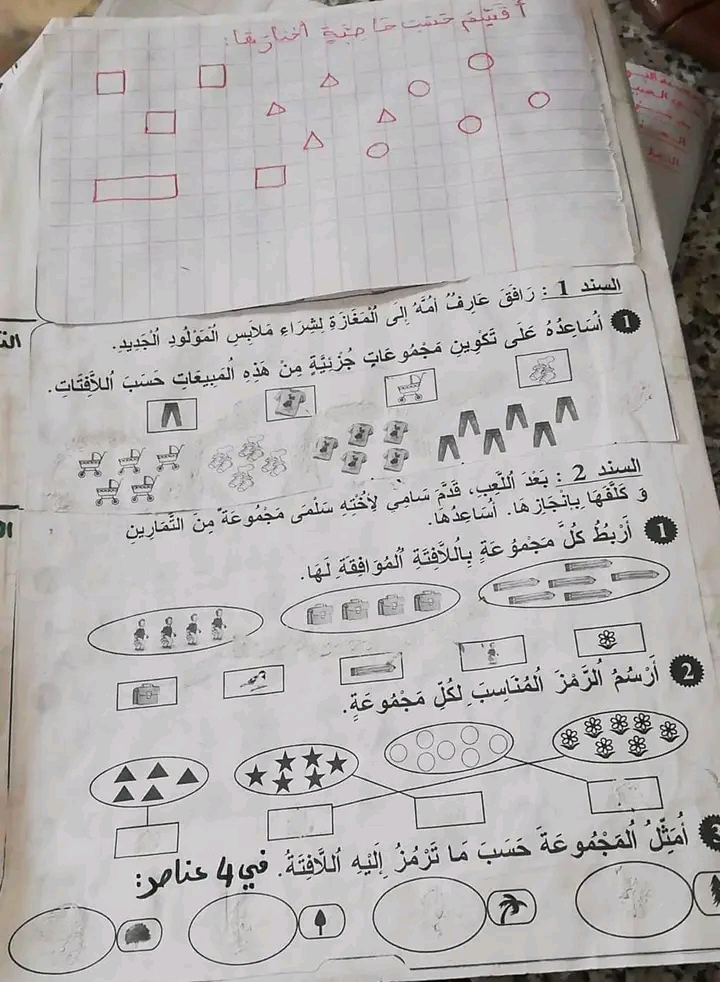 أقيّم حسب خاصية أختارها:
السند 1 : رَافَقَ عَارِفُ أُمَّهُ إِلَى ٱلْمَغَازَةِ لِشِرَاءِ مَلَابِسِ ٱلْمَوْلُودِ ٱلْجَدِيدِ.
1 أُسَاعِدُهُ عَلَى تَكْوِينِ مَجْمُوعَاتٍ جُزْئِيَّةٍ مِنْ هَذِهِ ٱلمَبِيعَاتِ حَسَبَ ٱللاَّفِتَاتِ.
السند 2 : بَعْدَ ٱللَّعِبِ، قَدَّمَ سَامِي لِأُخْتِهِ سَلْمَى مَجْمُوعَةً مِنَ ٱلتَّمَارِينِ
وَ كَلَّفَهَا بِإِنْجَازِهَا. أُسَاعِدُهَا.
1 أَرْبِطُ كُلَّ مَجْمُوعَةٍ بِٱللاَّفِتَةِ ٱلْمُوَافِقَةِ لَهَا.
2 أَرْسُمُ ٱلرَّمْزَ ٱلْمُنَاسِبَ لِكُلِّ مَجْمُوعَةٍ.
3 أُمَثِّلُ ٱلْمَجْمُوعَةَ حَسَبَ مَا تَرْمُزُ إِلَيْهِ ٱللاَّفِتَةُ. في 4 عناصر: